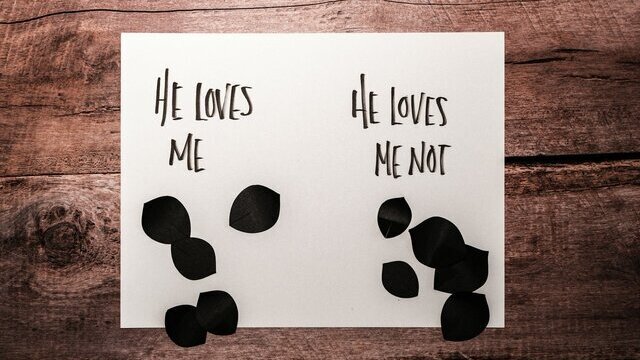 HE LOVES
ME
HE LOVES
ME NOT